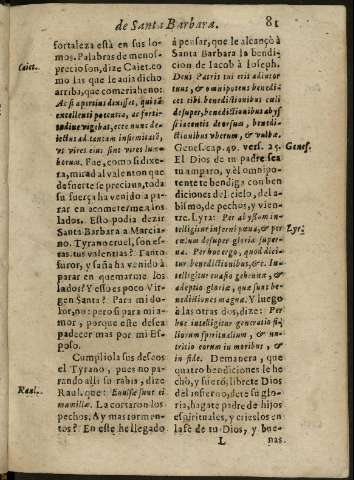 de Santa Barbara.
81
fortaleza està en sus lo-
mos. Palabras de menos-
Caiet.
precio son, dize Caiet. co
mo las que le auia dicho
arriba, que comeria heno:
Ac si apertius dixisset, qui tã
excellenti potentia, ac forti-
tudine vigebas, ecce nunc de-
iectus ad tantam infirmitatẽ,
vt vires eius sint vires lum-
borum. Fue, como si dixe-
ra, mirad al valenton que
de fuerte se preciaua, toda
su fuerça ha venido a pa-
rar en acometerme a los
lados. Esto podia dezir
Santa Barbara a Marcia-
no. Tyrano cruel, son es-
tas tus valentias? Tanto
furor, y saña ha venido à
parar en quemarme los
lados? Y esso es poco Vir-
gen Santa? Para mi do-
lor, no: pero si para mi a-
mor, porque este desea
padecer mas por mi Es-
poso.
Cumpliola sus deseos
el Tyrano, pues no pa-
rando alli su rabia, dize
Raul.
Raul. que:
La cortaron los
pechos. Ay mas tormen-
tos? En este he llegado
à pensar, que le alcançò à
Santa Barbara la bendi-
cion de Iacob à Ioseph.
Deus Patris tui erit adiutor
tuus, & omnipotens benedi-
cet tibi benedictionibus cœli
desuper, benedictionibus abys
si iacentis deorsum, benedi-
ctionibus vberum, & vulbæ.
Genes. cap. 49. vers. 25.
Genes.
El Dios de tu padre sea
tu amparo, y èl omnipo-
tente te bendiga con ben
diciones del cielo, del a-
bismo, de pechos, y vien-
tre. Lyra: Per abyssum in-
Lyr.
telligitur infernus, & per
cælum desuper gloria super-
na. Per hoc ergo, quod dici-
tur benedictionibus, &c. In-
telligitur euasio gehennæ, &
adeptio gloriæ, quæ sunt be-
nedictiones magnæ. Y luego
à las otras dos, dize: Per
hoc intelligitur generatio fi-
liorum spiritualium, & nu-
tritio eorum in moribus, &
in fide. De manera, que
quatro bendiciones le he
cho, y fuerõ, librete Dios
del infierno, dete su glo-
ria, hagate padre de hijos
espirituales, y crieslos en
la fè de tu Dios, y bue-
L
nas.